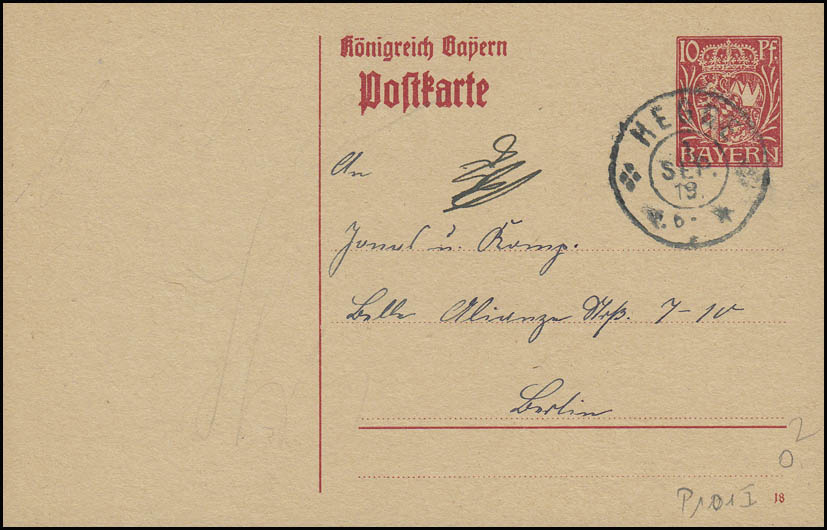 Königreich Bayern
Postkarte
10 Pf.
BAYERN
SEP.
19.
An
Jonas u. Komp.
Belle Alianze Str. 7-10
Berlin
2
0.
P101I
18